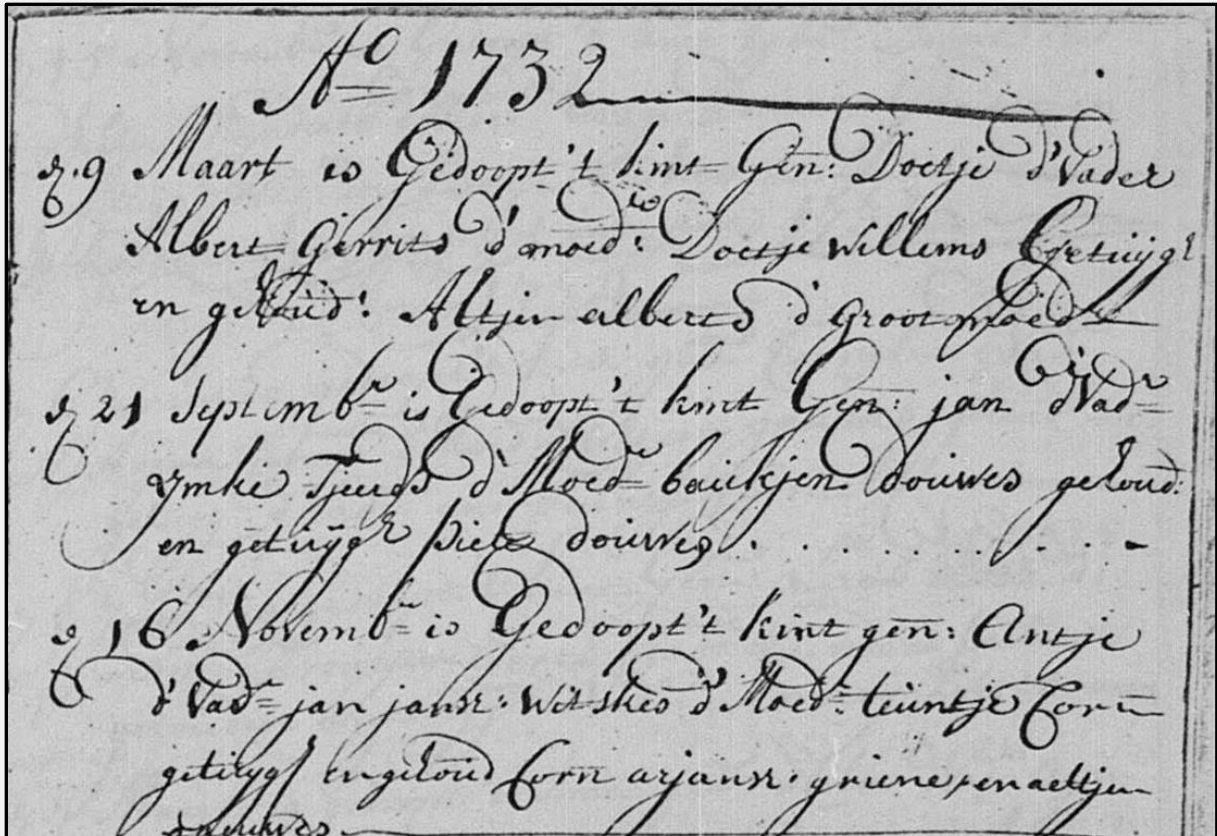 Ao 1732
d. 9 Maart is Gedoopt 't kint Gen: Doetje d' Vader
Albert Gerrits d' moedr: Doetje willems Getuijge
en geloud: Altjen alberts d' Grootmoedr
d 21 Septembr is Gedoopt 't kint Gen: jan d' Vadr
ijmke Tjeerds d' Moedr baukjen douwes geloud:
en getuijge Piet douwes
d 16 Novembr is Gedoopt 't kint gen: Antje
d' Vadr jan jansz: witskes d' Moedr: teuntje Corn
getuijg en geloud Corn arjansz: griene, en aeltjen